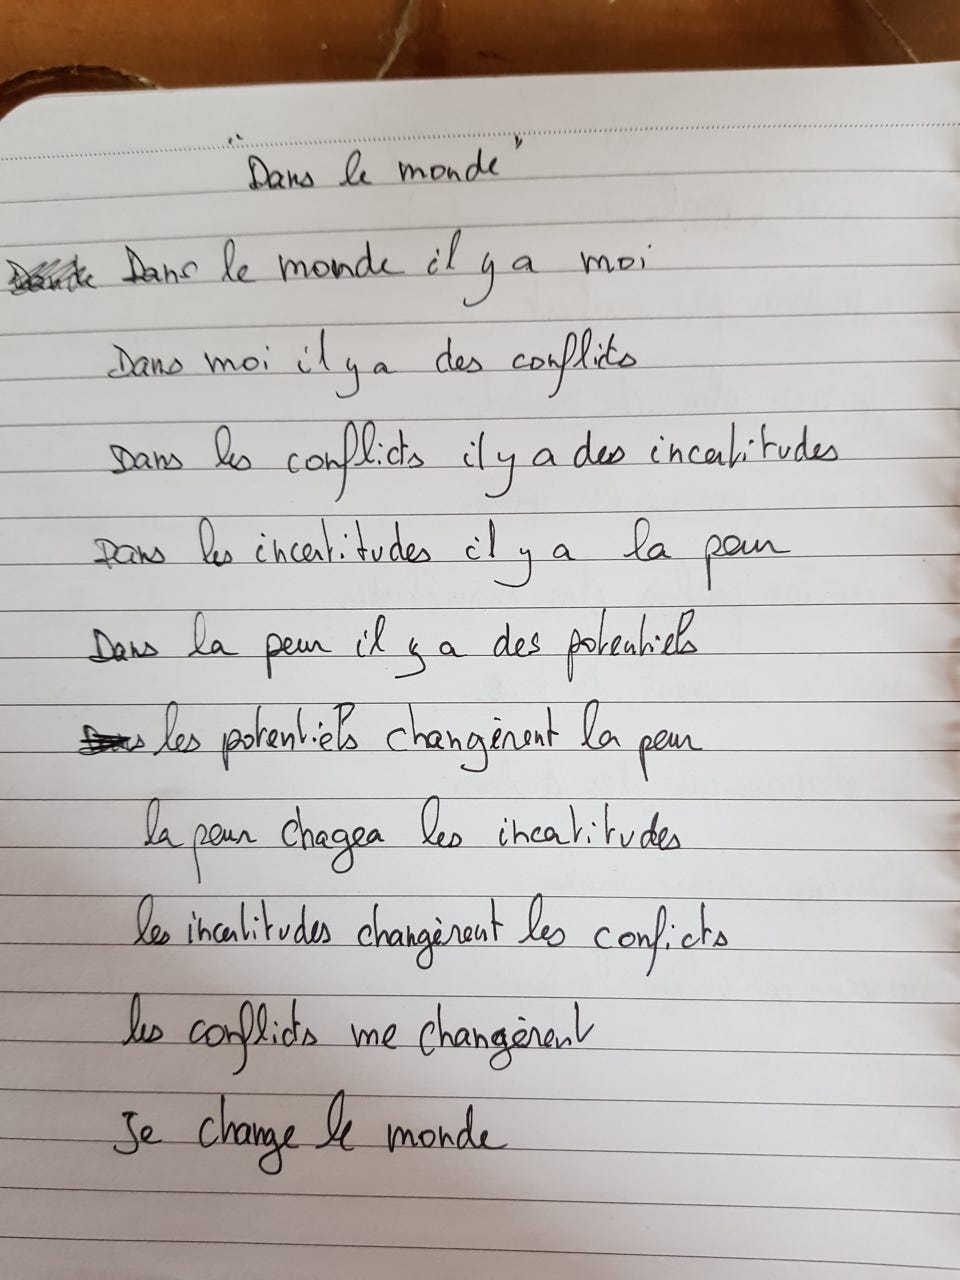 "Dans le monde"
Dans le monde il y a moi
Dans moi il y a des conflits
Dans les conflicts il y a des incertitudes
Dans les incertitudes il y a la peur
Dans la peur il y a des potentiels
les potentiels changèrent la peur
la peur chagea les incertitudes
les incertitudes changèrent les conficts
les conflicts me changèrent
Je change le monde